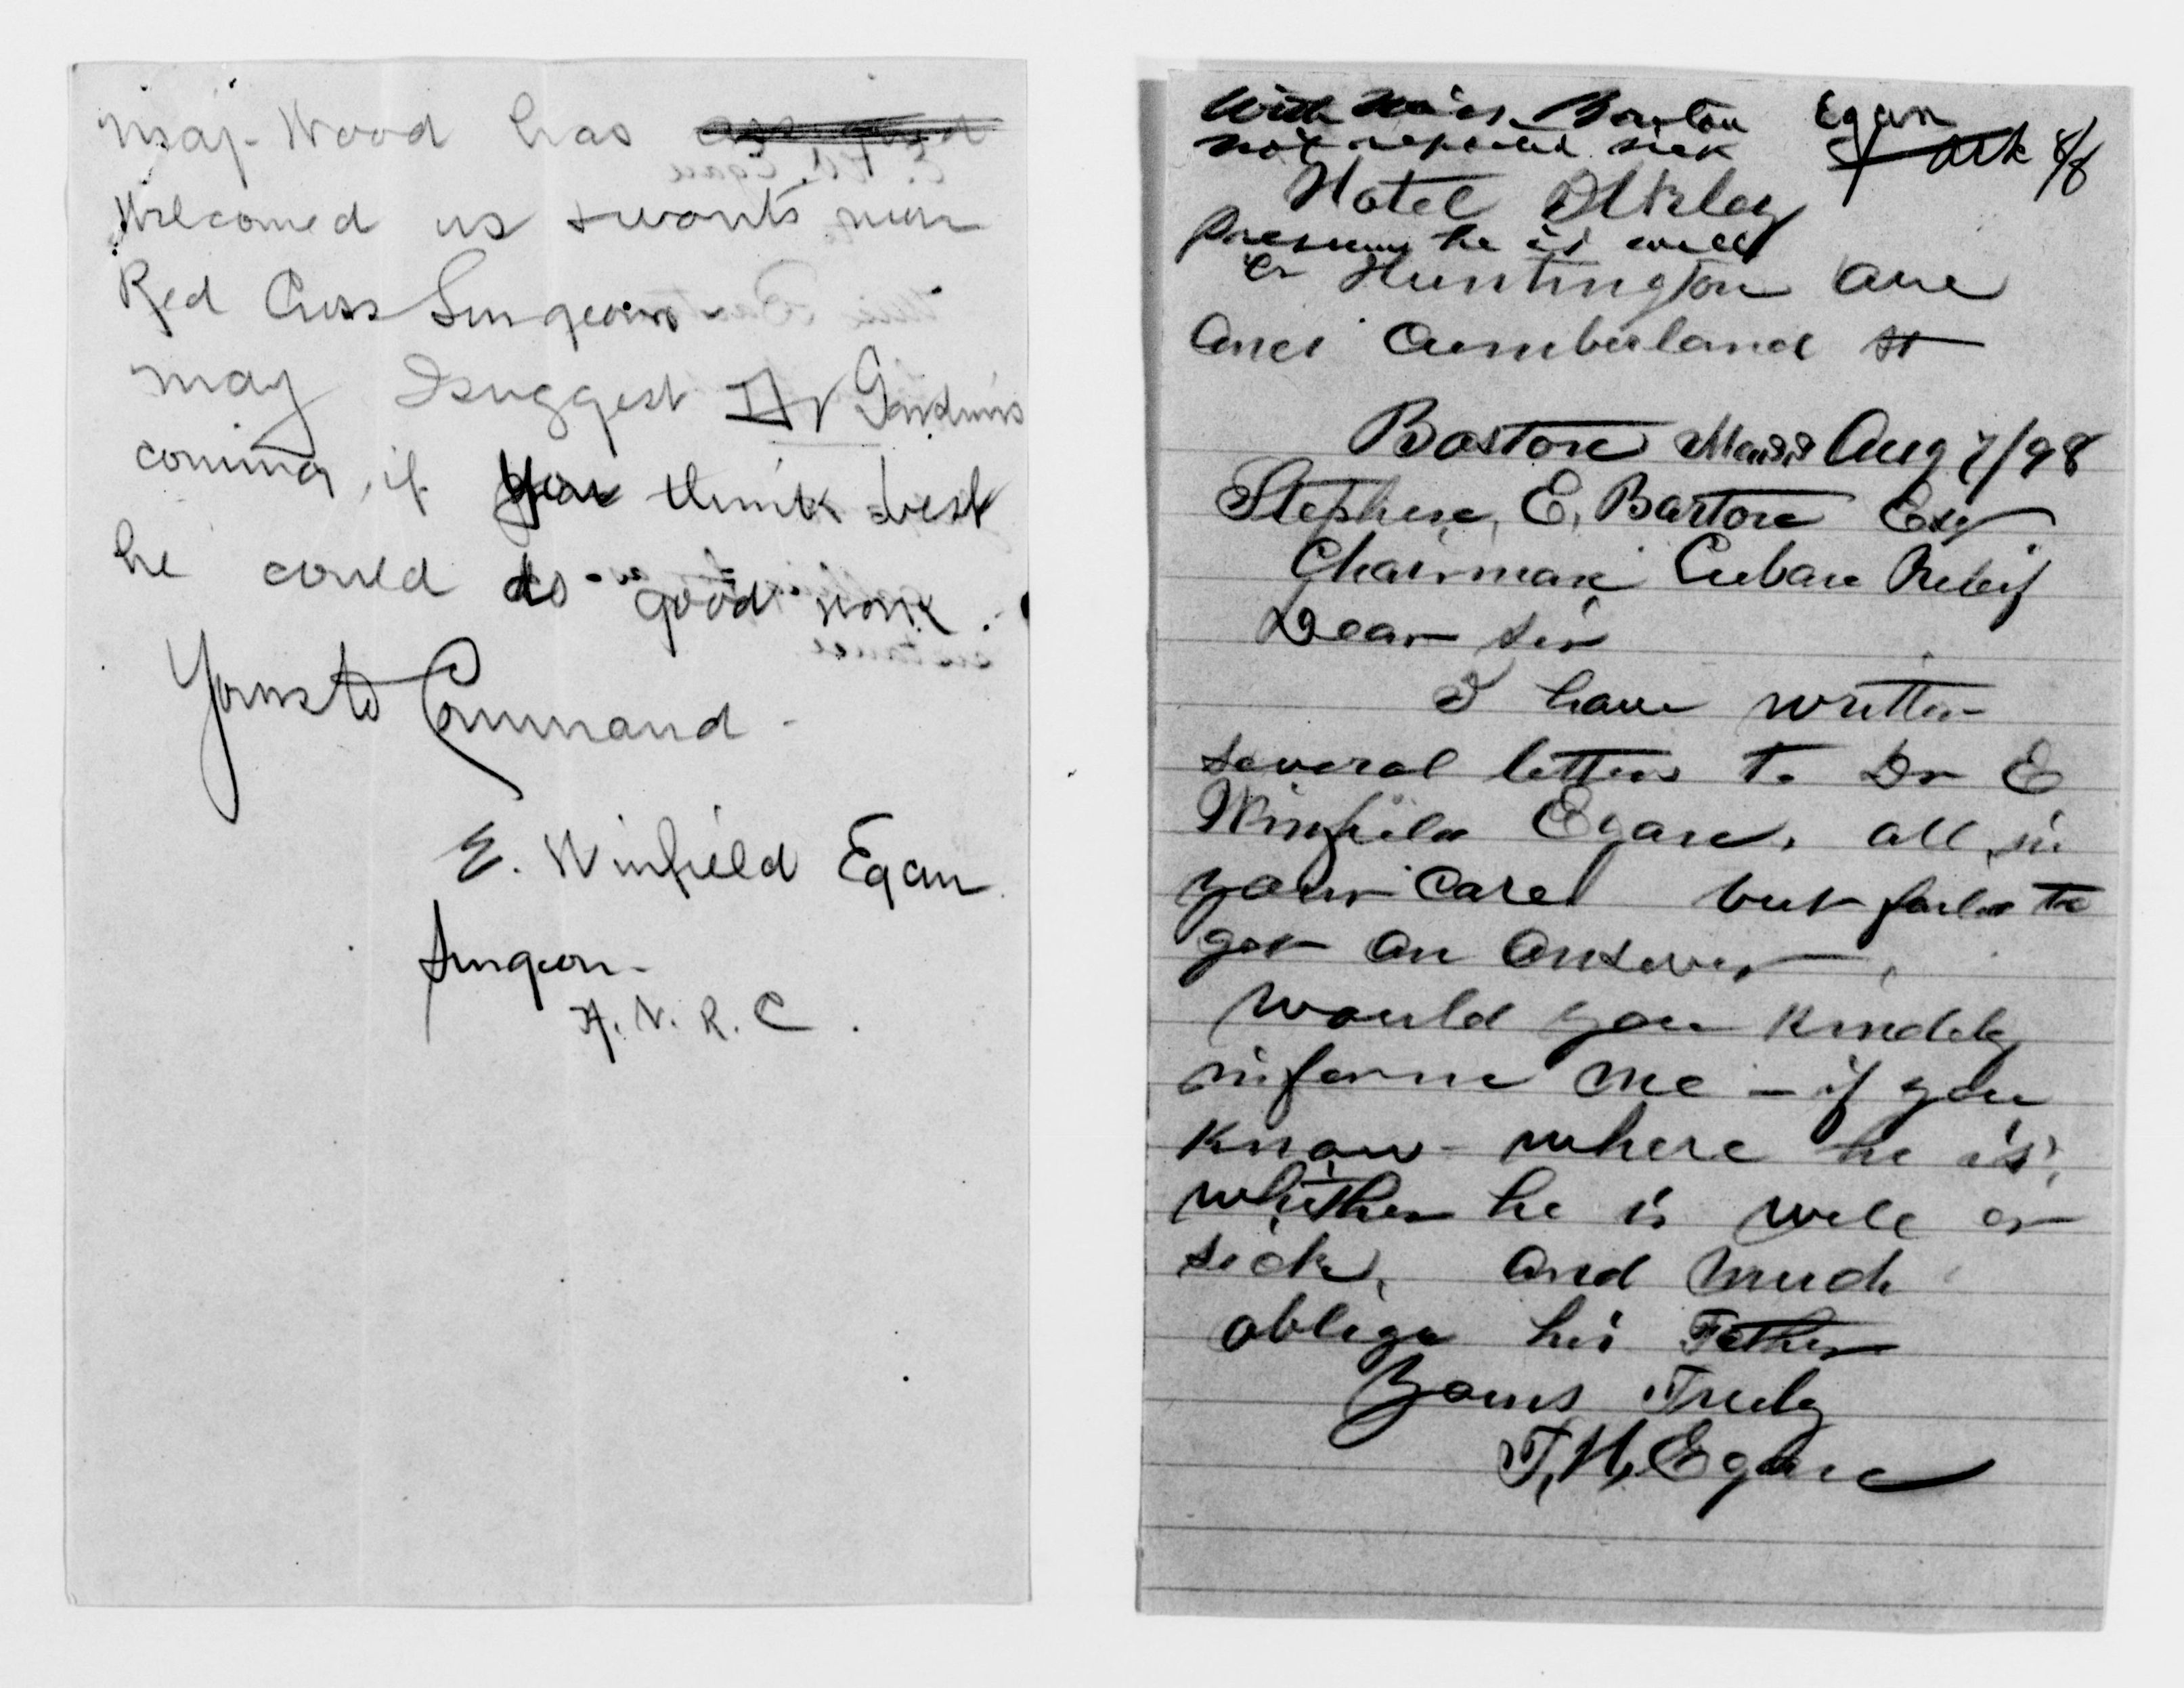 Maj- Wood has
Welcomed us & wants more
Red Cross Surgeons-
may I suggest Dr Gardner's
coming, if you think best
he could do good work.
Yours to Command-
E. Winfield Egan
Surgeon-
A. N. R. C.
With Miss Barton Egan
not reported sick 8/8
Hotel
Presume he is well
Cr Huntington Ave
and Cumberland St
Boston Mass Aug 7/98
Stephen, E, Barton Esq
Chairman Cuban Relief
Dear Sir
I have written
several letters to Dr E
Winfield Egan, all in
your care but failed to
get an answer,
would you Kindly
inform me - if you
Know - where he is,
whether he is well or
sick, and much
oblige his Father
Yours Truly
T, H, Egan